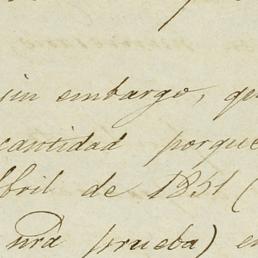 sin embargo, qu
cantidad porque
Abril de 1851 (
nra prueba) e